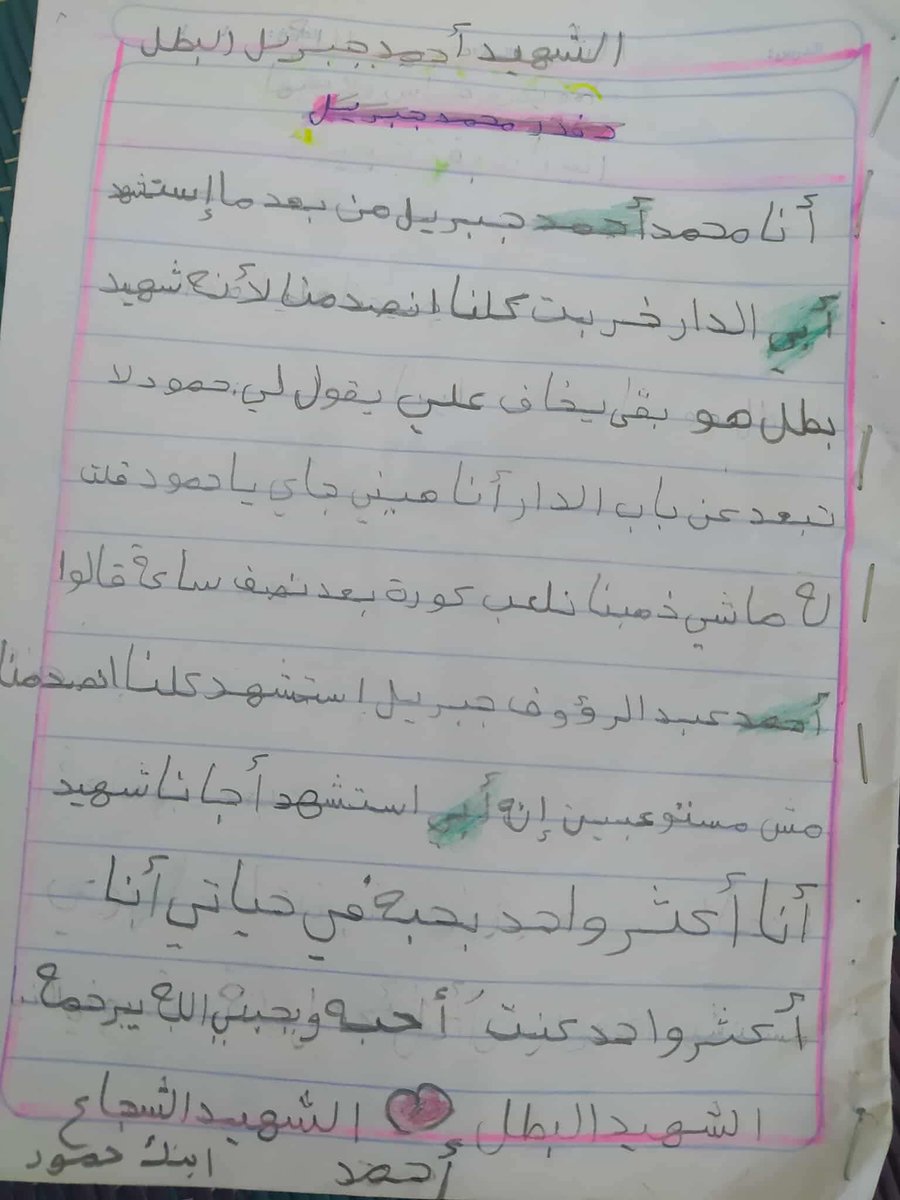 الشهيد أحمد جبريل البطل
محمد جبريل
أنا محمد أحمد جبريل من بعد ما إستشهد
أبي الدار خربت كلنا انصدمنا لأنه شهيد
بطل هو بقى يخاف علي يقول لي حمود لا
تبعد عن باب الدار أنا هيني جاي يا حمود قلت
له ماشي ذهبنا نلعب كورة بعد نصف ساعة قالوا
أحمد عبد الرؤوف جبريل استشهد كلنا انصدمنا
مش مستوعبين إنه أبي استشهد أجانا شهيد
أنا أكثر واحد بحبه في حياتي أنا
أكثر واحد كنت أحبه ويحبني الله يرحمه
الشهيد البطل ❤ الشهيد الشجاع
أحمد ابنك حمود